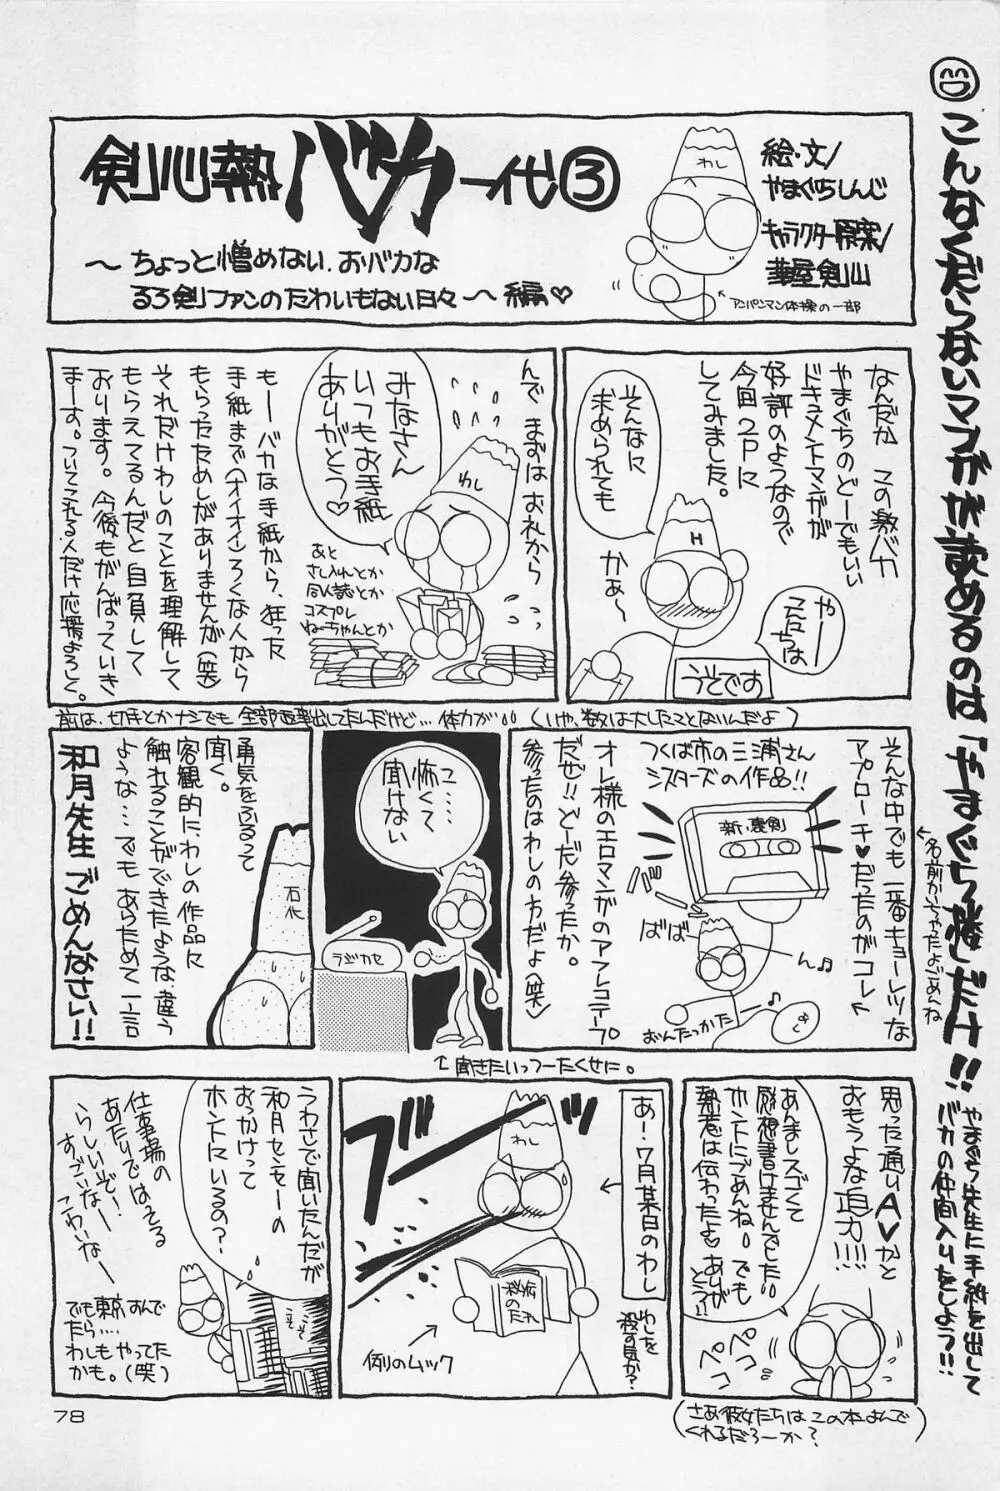 こんなくだらないマンガが読めるのは「やまぐち勝」だけ!!
やまぐち先生に手紙を出して
バカの仲間入りをしよう!!
剣心熱バカ一代③
～ちょっと憎めない、おバカな
るろ剣ファンのたわいもない日々～編♡
わし
絵・文/
やまぐちしんじ
キャラクター原案/
華屋剣山
アンパンマン体操の一部
なんだか この激バカ
やまぐちのどーでもいい
ドキュメントマンガが
好評のようなので
今回2Pに
してみました。
そんなに
求められても
かぁ〜
H
やー
ええらしいなあ
うそです
んで まずは おれから
みなさん
いつもお手紙
ありがとう♡
わし
あと
さし入れとか
同人誌とか
コスプレ
ねーちゃんとか
もーバカな手紙から、狂った
手紙まで(オイオイ)ろくな人から
もらったためしがありませんが(笑)
それだけわしのことを理解して
もらえてるんだと自負して
おります。今後もがんばっていき
まーす。ついてこれる人だけ応援よろしく。
前は、切手とかナシでも全部返事出してたんだけど…体力が!!
(いや、数は大したことないんだよ)
そんな中でも一番キョーレツな
アプローチ♡だったのがコレ
←名前かいちゃったよごめんね
つくば市の三浦さん
シスターズの作品!!
新・裏剣
ばば
ん♫
おんたっかた
めし
オレ様のエロマンガのアフレコテープ
だぜ!!どーだ参ったか。
参ったのはわしのカだよ(笑)
コ…
怖くて
聞けない
ラジカセ
↑聞きたいっつーたくせに。
勇気をふるって
聞く。
客観的に、わしの作品に
触れることができたような違う
ような…でもあらためて一言
和月先生ごめんなさい!!
石化
思った通りAVかと
おもうよな迫力!!!!
あんましスゴくて
感想書けませんでした!!
ホントにごめんね。でも
熱意は伝わったよ。ありが
とう!!
ペコ
ペコ
(さあ彼女たちはこの本よんで
くれるだろーか?)
あー、7月某日のわし
わし
わしを
殺す気か?
秘伝
のたれ
例のムック
うわさで聞いたんだが
和月センセーの
おっかけって
ホントにいるの?
こそこそ
仕事場の
あたりではってる
らしいぞ!
すっごいなー!
こわいなー
でも東京すんで
たら…
わしもやってた
かも。(笑)
78